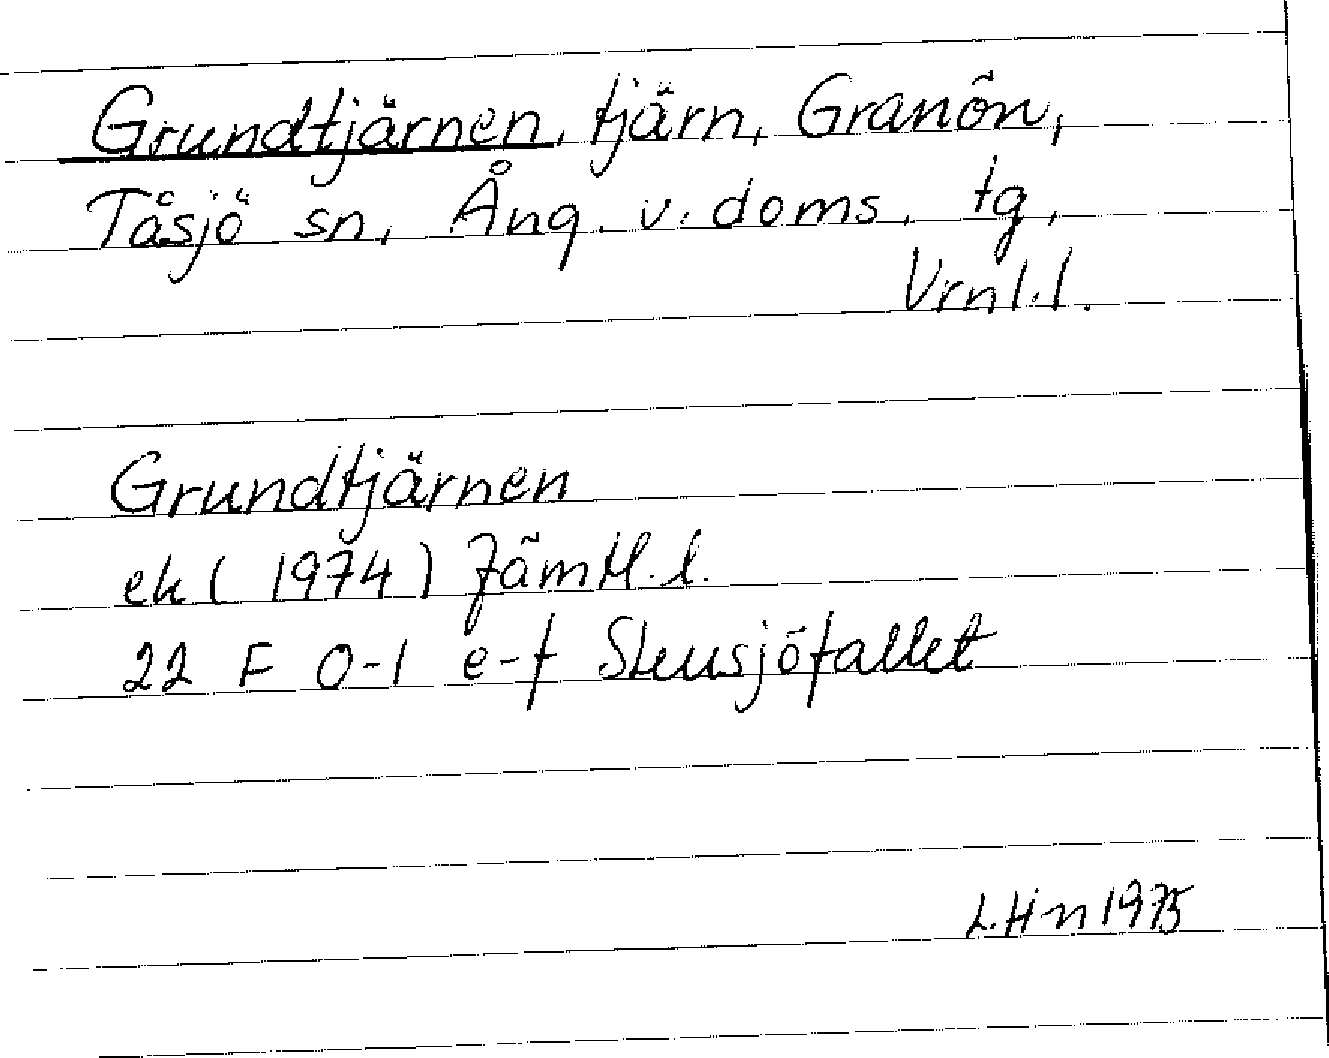 Grundtjärnen, tjärn, Granön,
Tåsjö sn, Ång. v. doms. tg,
Vrnl.l.
Grundtjärnen
ek ( 1974 ) Jämtl.l.
22 F 0-1 e-f Skusjöfallet
L.H-n 1975